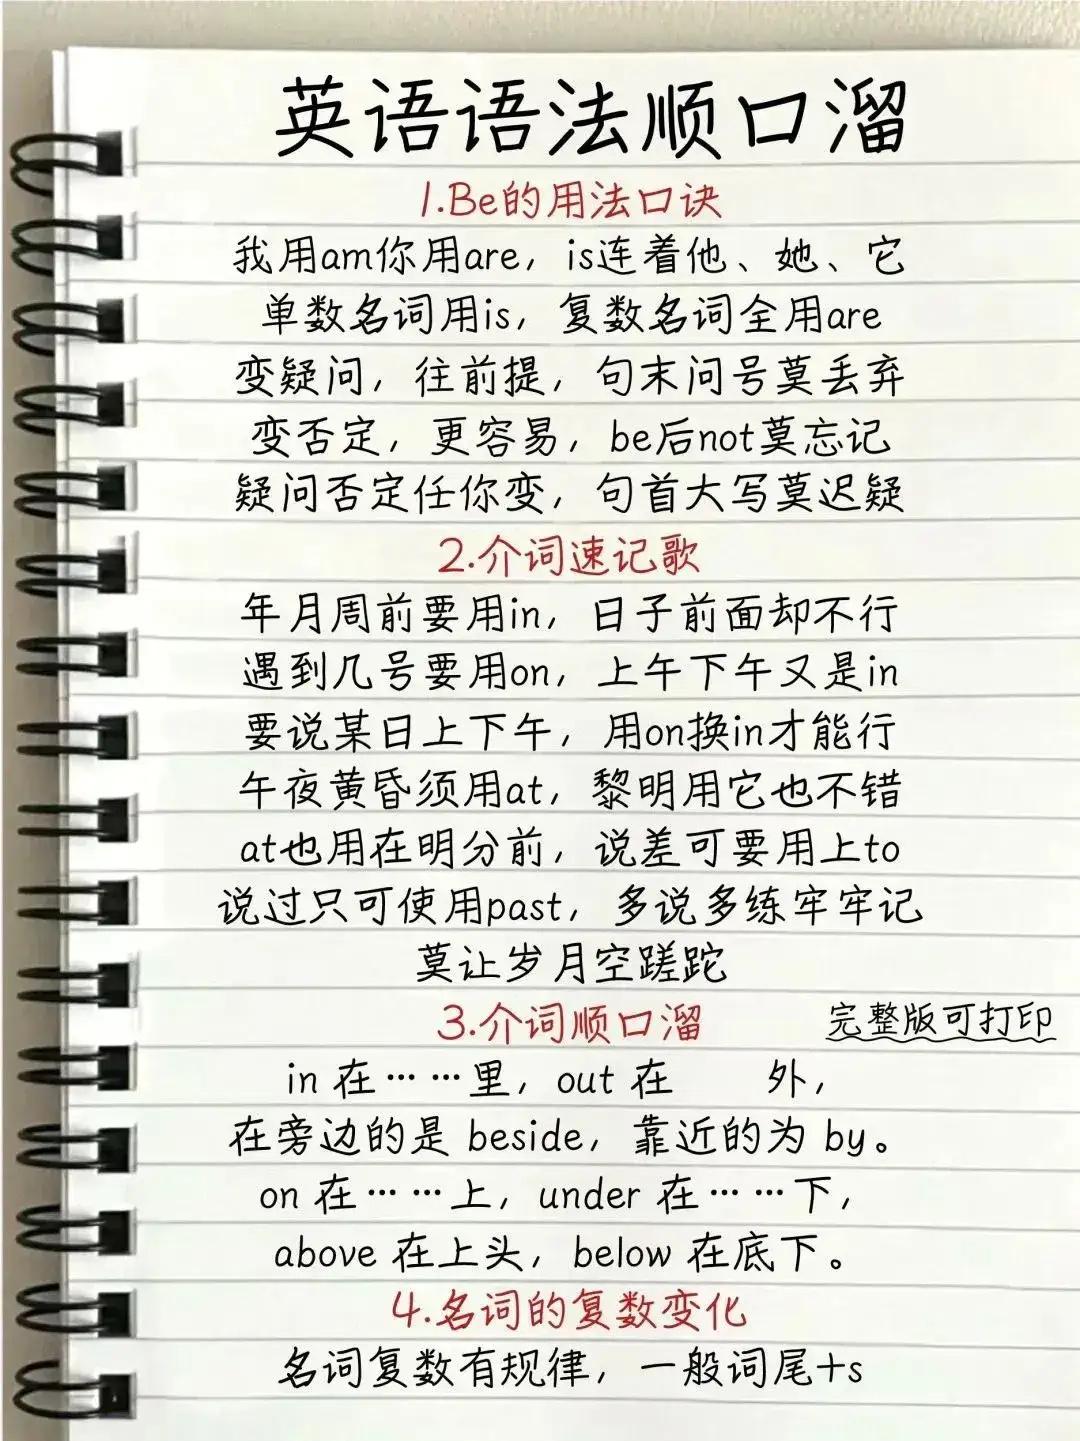 英语语法顺口溜
1.Be的用法口诀
我用am你用are，is连着他、她、它
单数名词用is，复数名词全用are
变疑问，往前提，句末问号莫丢弃
变否定，更容易，be后not莫忘记
疑问否定任你变，句首大写莫迟疑
2.介词速记歌
年月周前要用in，日子前面却不行
遇到几号要用on，上午下午又是in
要说某日上下午，用on换in才能行
午夜黄昏须用at，黎明用它也不错
at也用在明分前，说差可要用上to
说过只可使用past，多说多练牢牢记
莫让岁月空蹉跎
3.介词顺口溜
完整版可打印
in 在……里，out 在 外，
在旁边的是 beside，靠近的为 by。
on 在……上，under 在……下，
above 在上头，below 在底下。
4.名词的复数变化
名词复数有规律，一般词尾+s